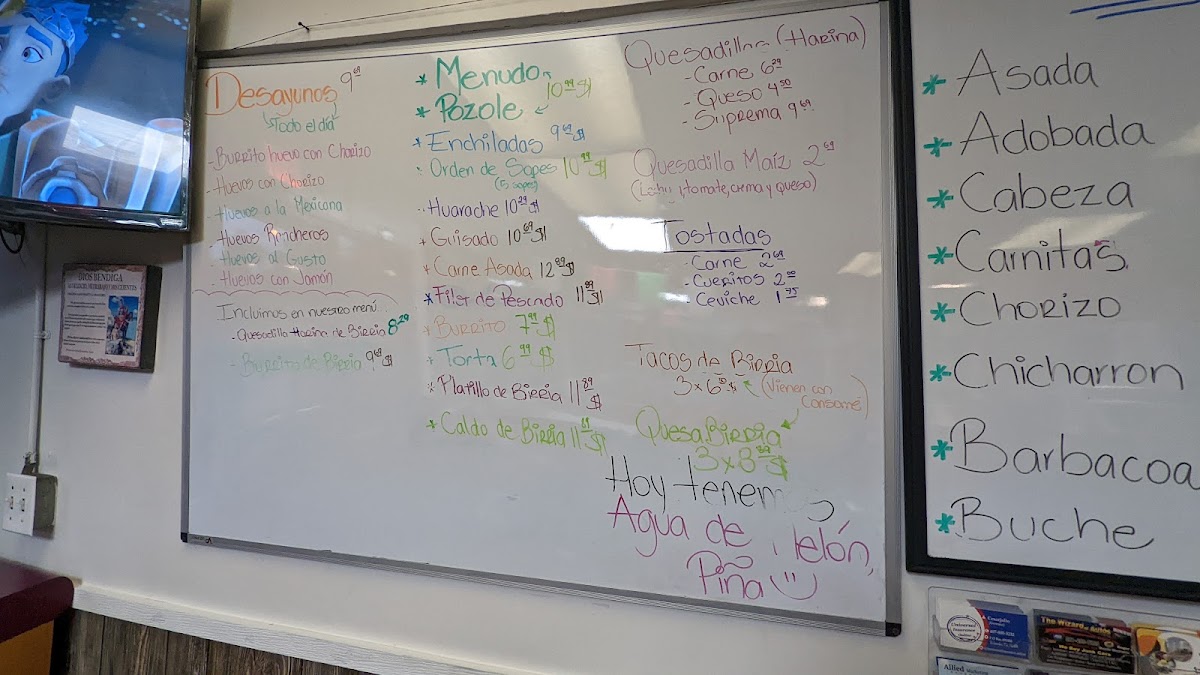 Desayunos 9.69
Todo el día
- Burrito huevo con Chorizo
- Huevos con Chorizo
- Huevos a la Mexicana
- Huevos Rancheros
- Huevos al Gusto
- Huevos con Jamón
Incluimos en nuestro menú...
- Quesadilla Harina de Birria 8.29
- Burrito de Birria 9.69 $
* Menudo
10.99 $
* Pozole
* Enchiladas 9.69 $
Orden de Sopes 10.99 $
(5 sopes)
Huarache 10.29 $
Guisado 10.69 $
Carne Asada 12.89 $
* Filet de Pescado 11.89 $
Burrito 7.99 $
Torta 6.99 $
* Platillo de Birria 11.89 $
* Caldo de Birria 11.69 $
Quesadillas (Harina)
- Carne 6.29
- Queso 4.50
- Suprema 9.69
Quesadilla Maíz 2.69
tomate, crema y queso)
Tostadas
- Carne 2.69
- Cueritos 2.00
- Ceviche 1.75
Tacos de Birria
3 x 6 $ (Vienen con
Consomé)
QuesaBirria
3 x 8.89 $
Hoy
Agua de
Piña
* Asada
* Adobada
* Cabeza
* Carnitas
* Chorizo
* Chicharron
* Barbacoa
* Buche
DIOS BENDIGA
The Wizard